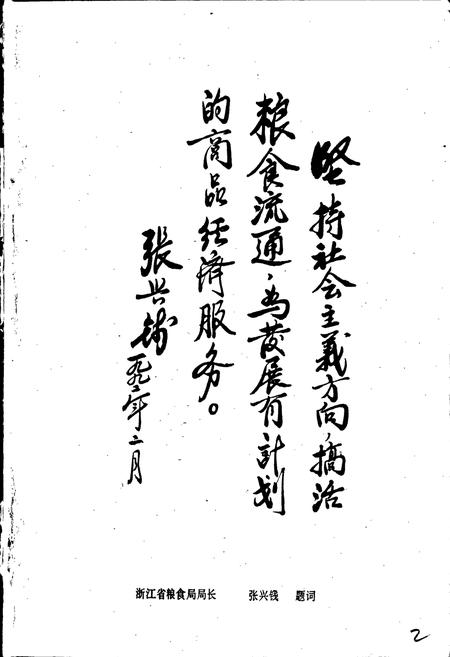 坚持社会主義方向，搞活
粮食流通，为發展有計划
的商品经济服务。
張兴钱
一九九二年二月
浙江省粮食局局长 张兴钱 题词
2